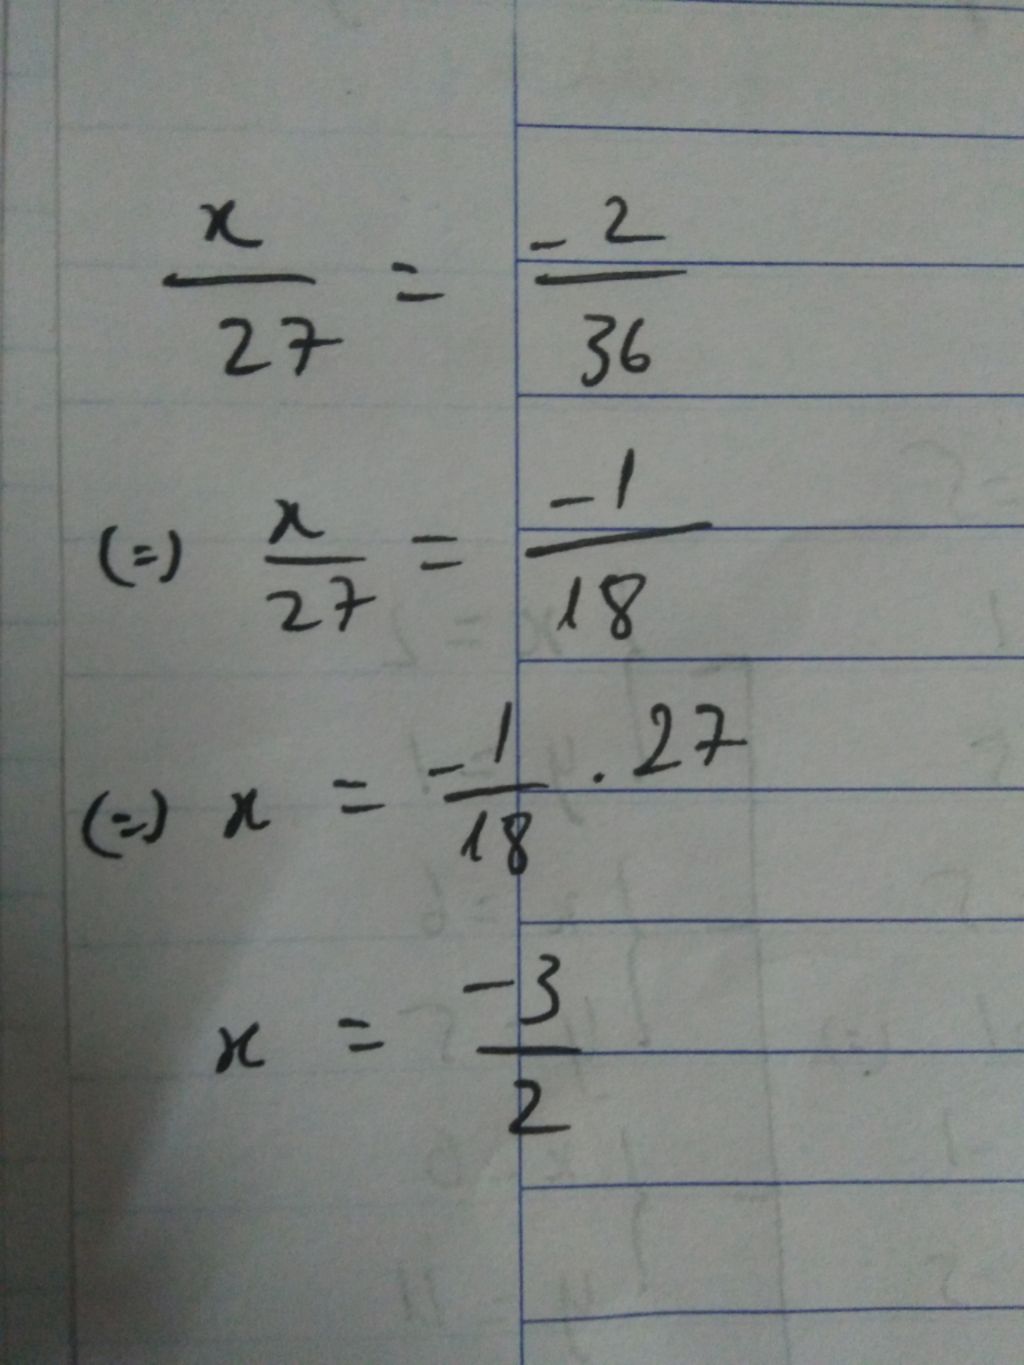 x/27 = -2/36
(=) x/27 = -1/18
(=) x = -1/18 . 27
x = -3/2